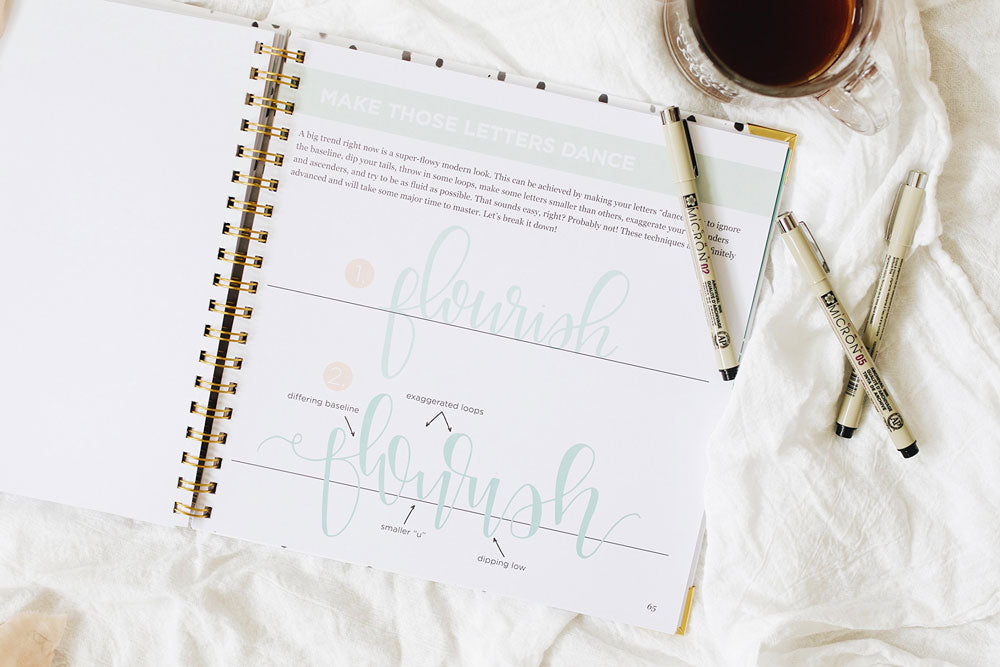 MAKE THOSE LETTERS DANCE
A big trend right now is a super-flowy modern look. This can be achieved by making your letters "dance to ignore
the baseline, dip your tails, throw in some loops, make some letters smaller than others, exaggerate your
and ascenders, and try to be as fluid as possible. That sounds easy, right? Probably not! These techniques
advanced and will take some major time to master. Let's break it down!
1.
flourish
2.
differing baseline
exaggerated loops
flourish
smaller "u"
dipping low
65
MICRON 02
MICRON 05
AP